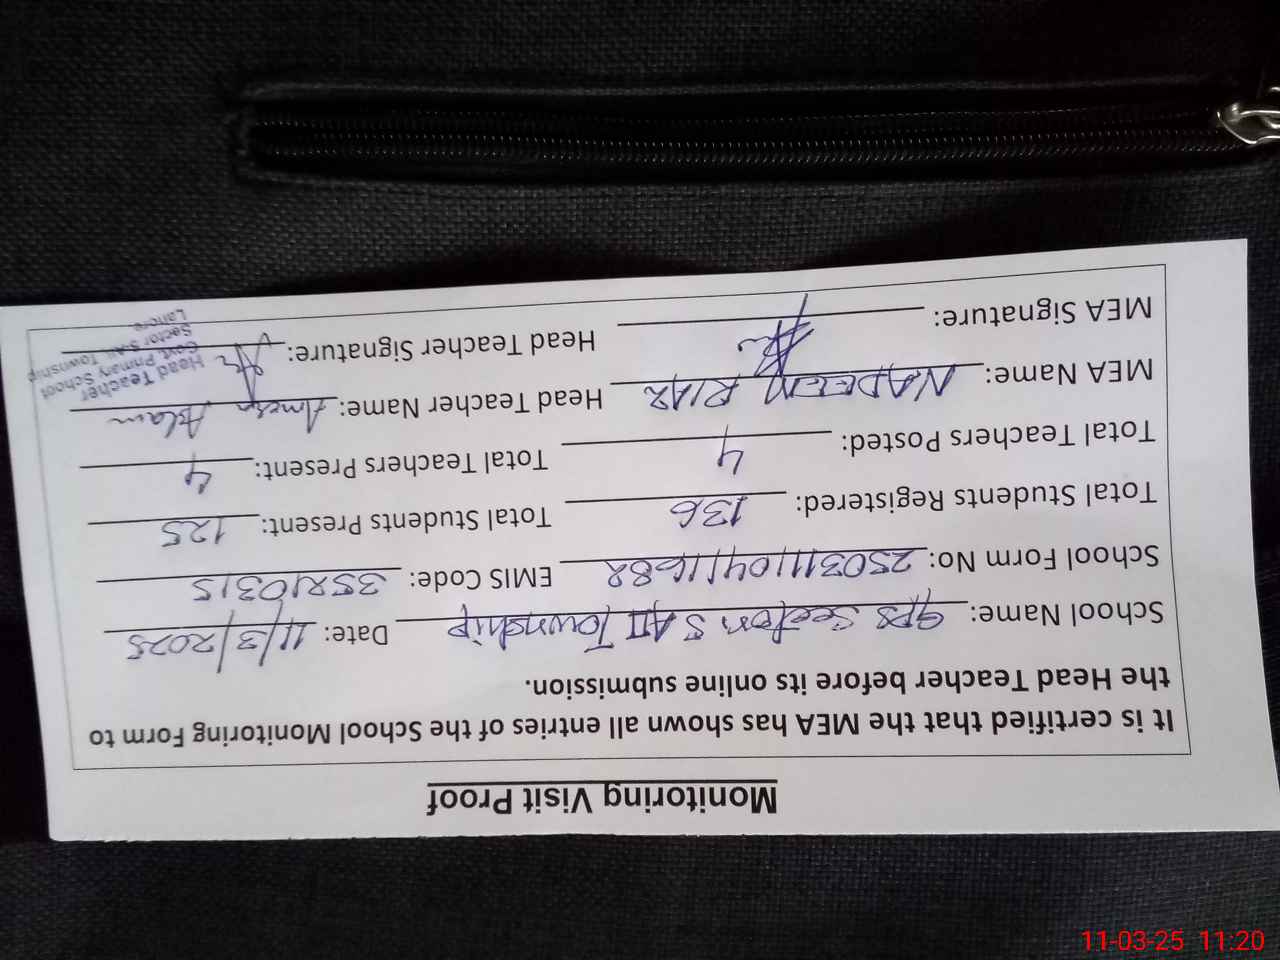 Monitoring Visit Proof
It is certified that the MEA has shown all entries of the School Monitoring Form to
the Head Teacher before its online submission.
School Name: GPS Sector 5 AII Township Date: 11/3/2025
School Form No: EMIS Code: 35210315
Total Students Registered: 136 Total Students Present: 125
Total Teachers Posted: 4 Total Teachers Present: 4
MEA Name: NADEEM RIAZ Head Teacher Name: Ameen Aslam
MEA Signature: Head Teacher Signature:
Head Teacher
Govt. Primary School
Sector 5AII Township
Lahore
11-03-25 11:20